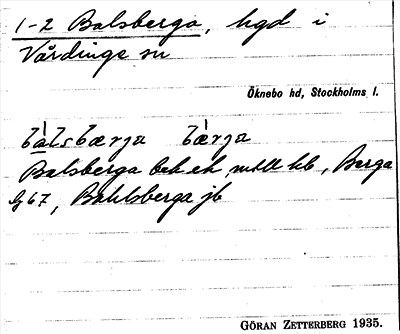 1-2 Balsberga, hgd i
Vårdinge sn
Öknebo hd, Stockholms l.
bàlsbærja bæ̀rja
Balsberga bek ek mtll hb, Berga
G67, Bahlsberga jb
GÖRAN ZETTERBERG 1935.